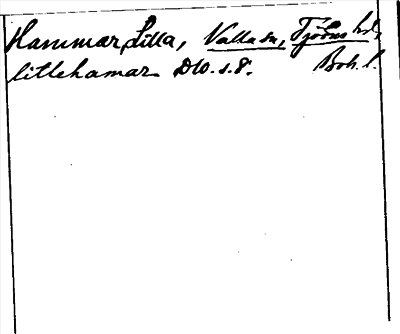 Hammar, Lilla, Valla sn, Tjörns hd,
litlehamar DW. s. 8. Boh. l.